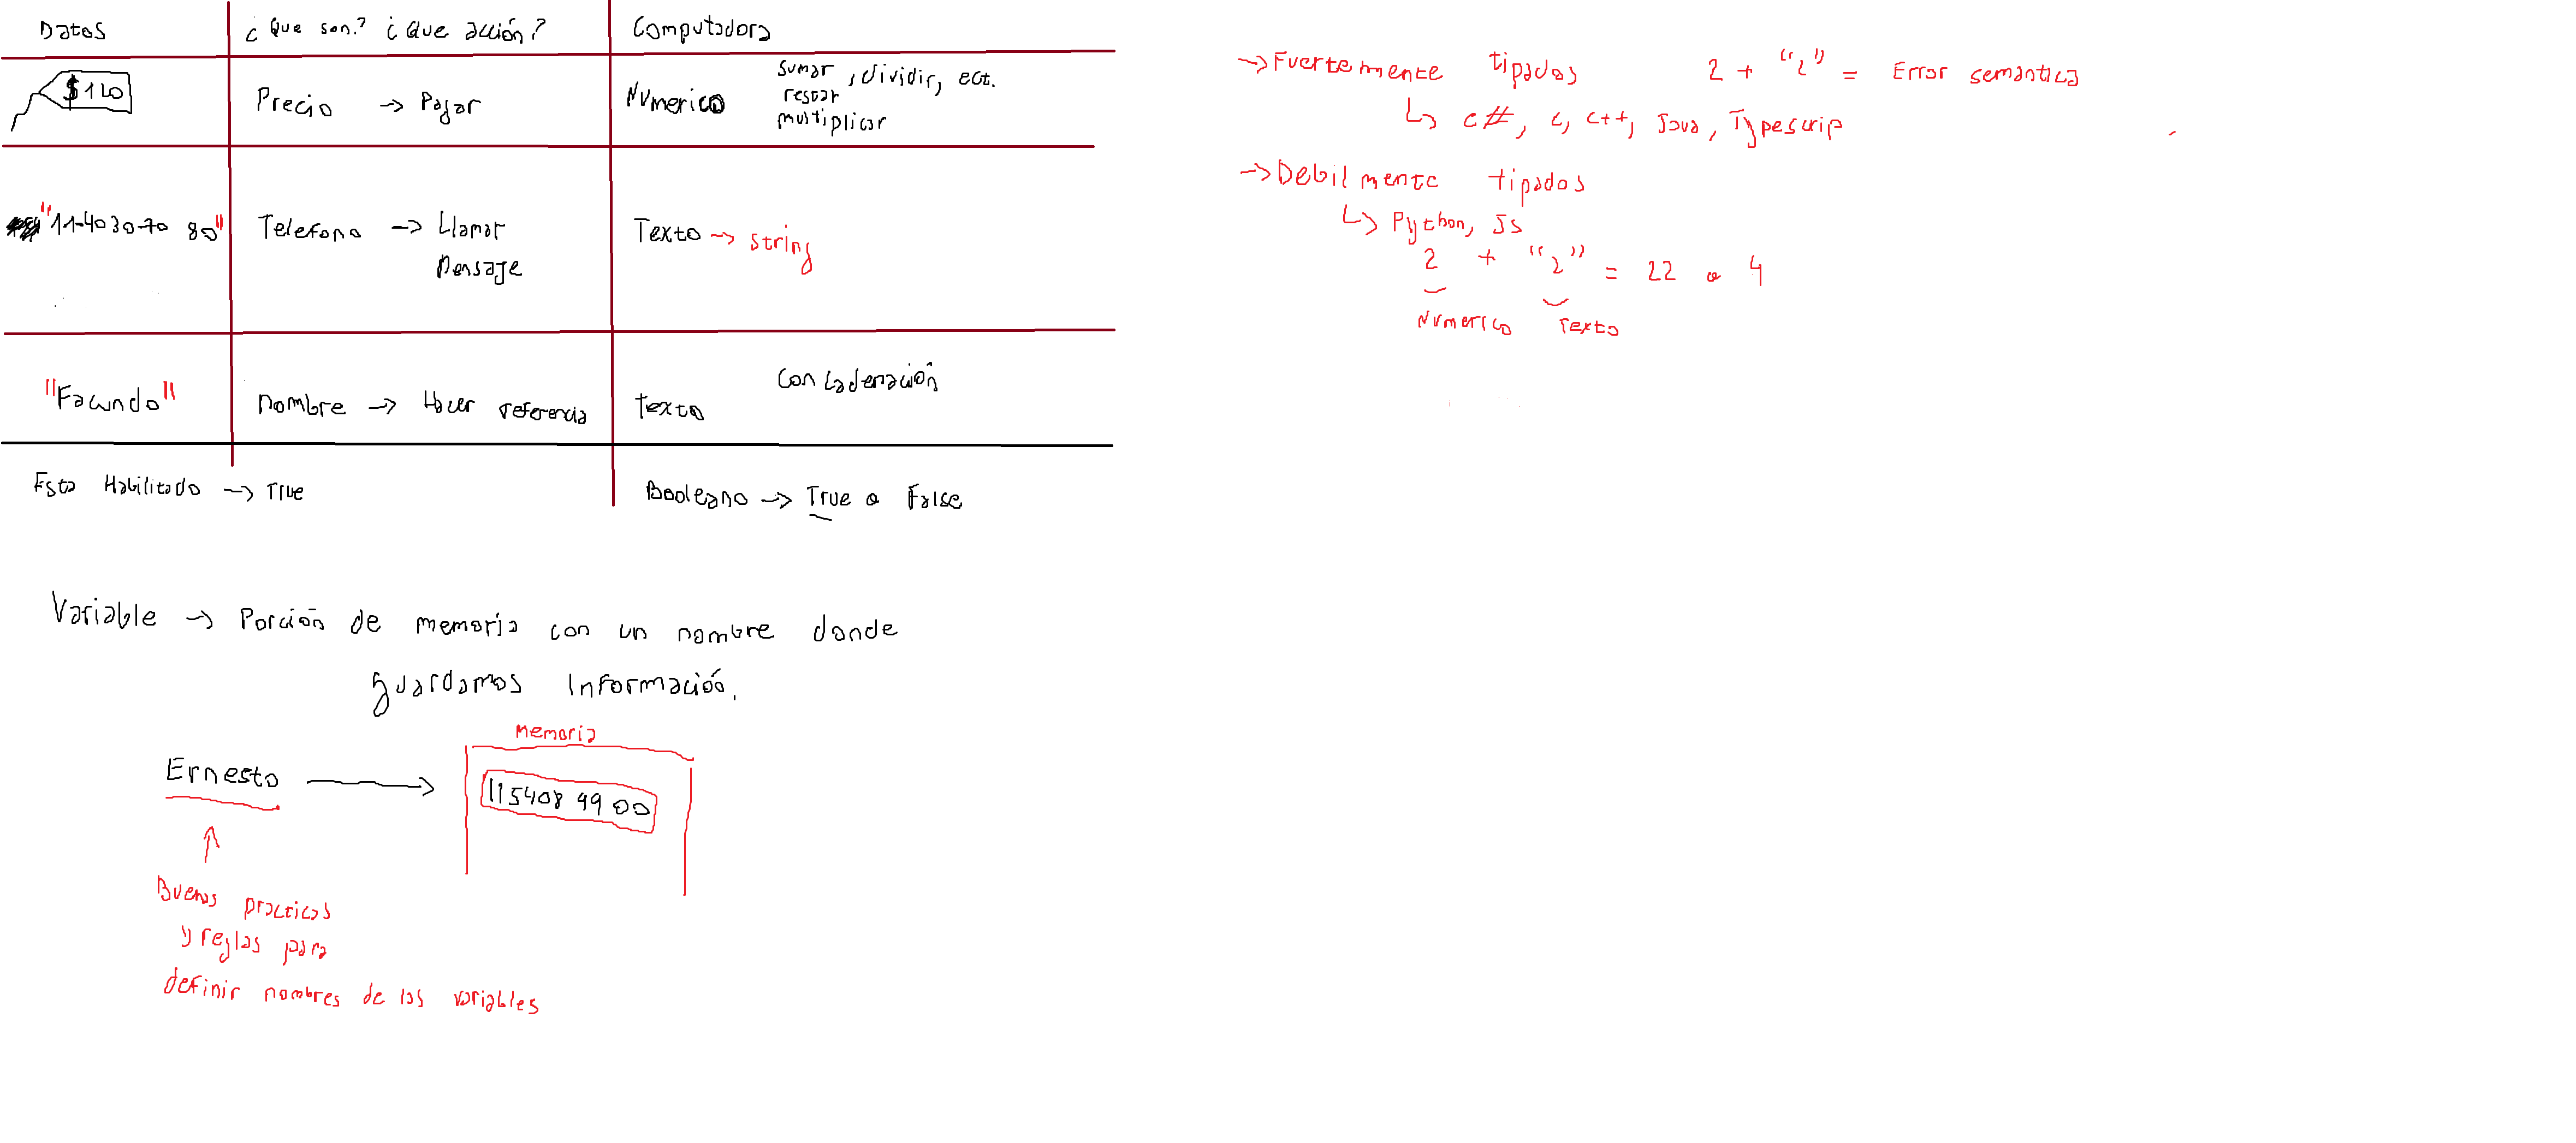 Datos ¿Que son? ¿Que acción? Computadora
$120 Precio → Pagar Numerico sumar, dividir, ect.
restar
multiplicar
"11-4030-70 80" Telefono → Llamar Texto → string
Mensaje
"Facundo" nombre → Hacer referencia Texto Concadenación
Esta Habilitado → True Booleano → True o False
Variable → Porción de memoria con un nombre donde
guardamos información.
Memoria
Ernesto → 115408 9900
Buenas practicas
y reglas para
definir nombres de las variables
→ Fuertemente tipados 2 + "2" = Error semantica
↳ c#, c, c++, Java, Typescrip
→ Debilmente tipados
↳ Python, Js
2 + "2" = 22 o 4
Numerico Texto